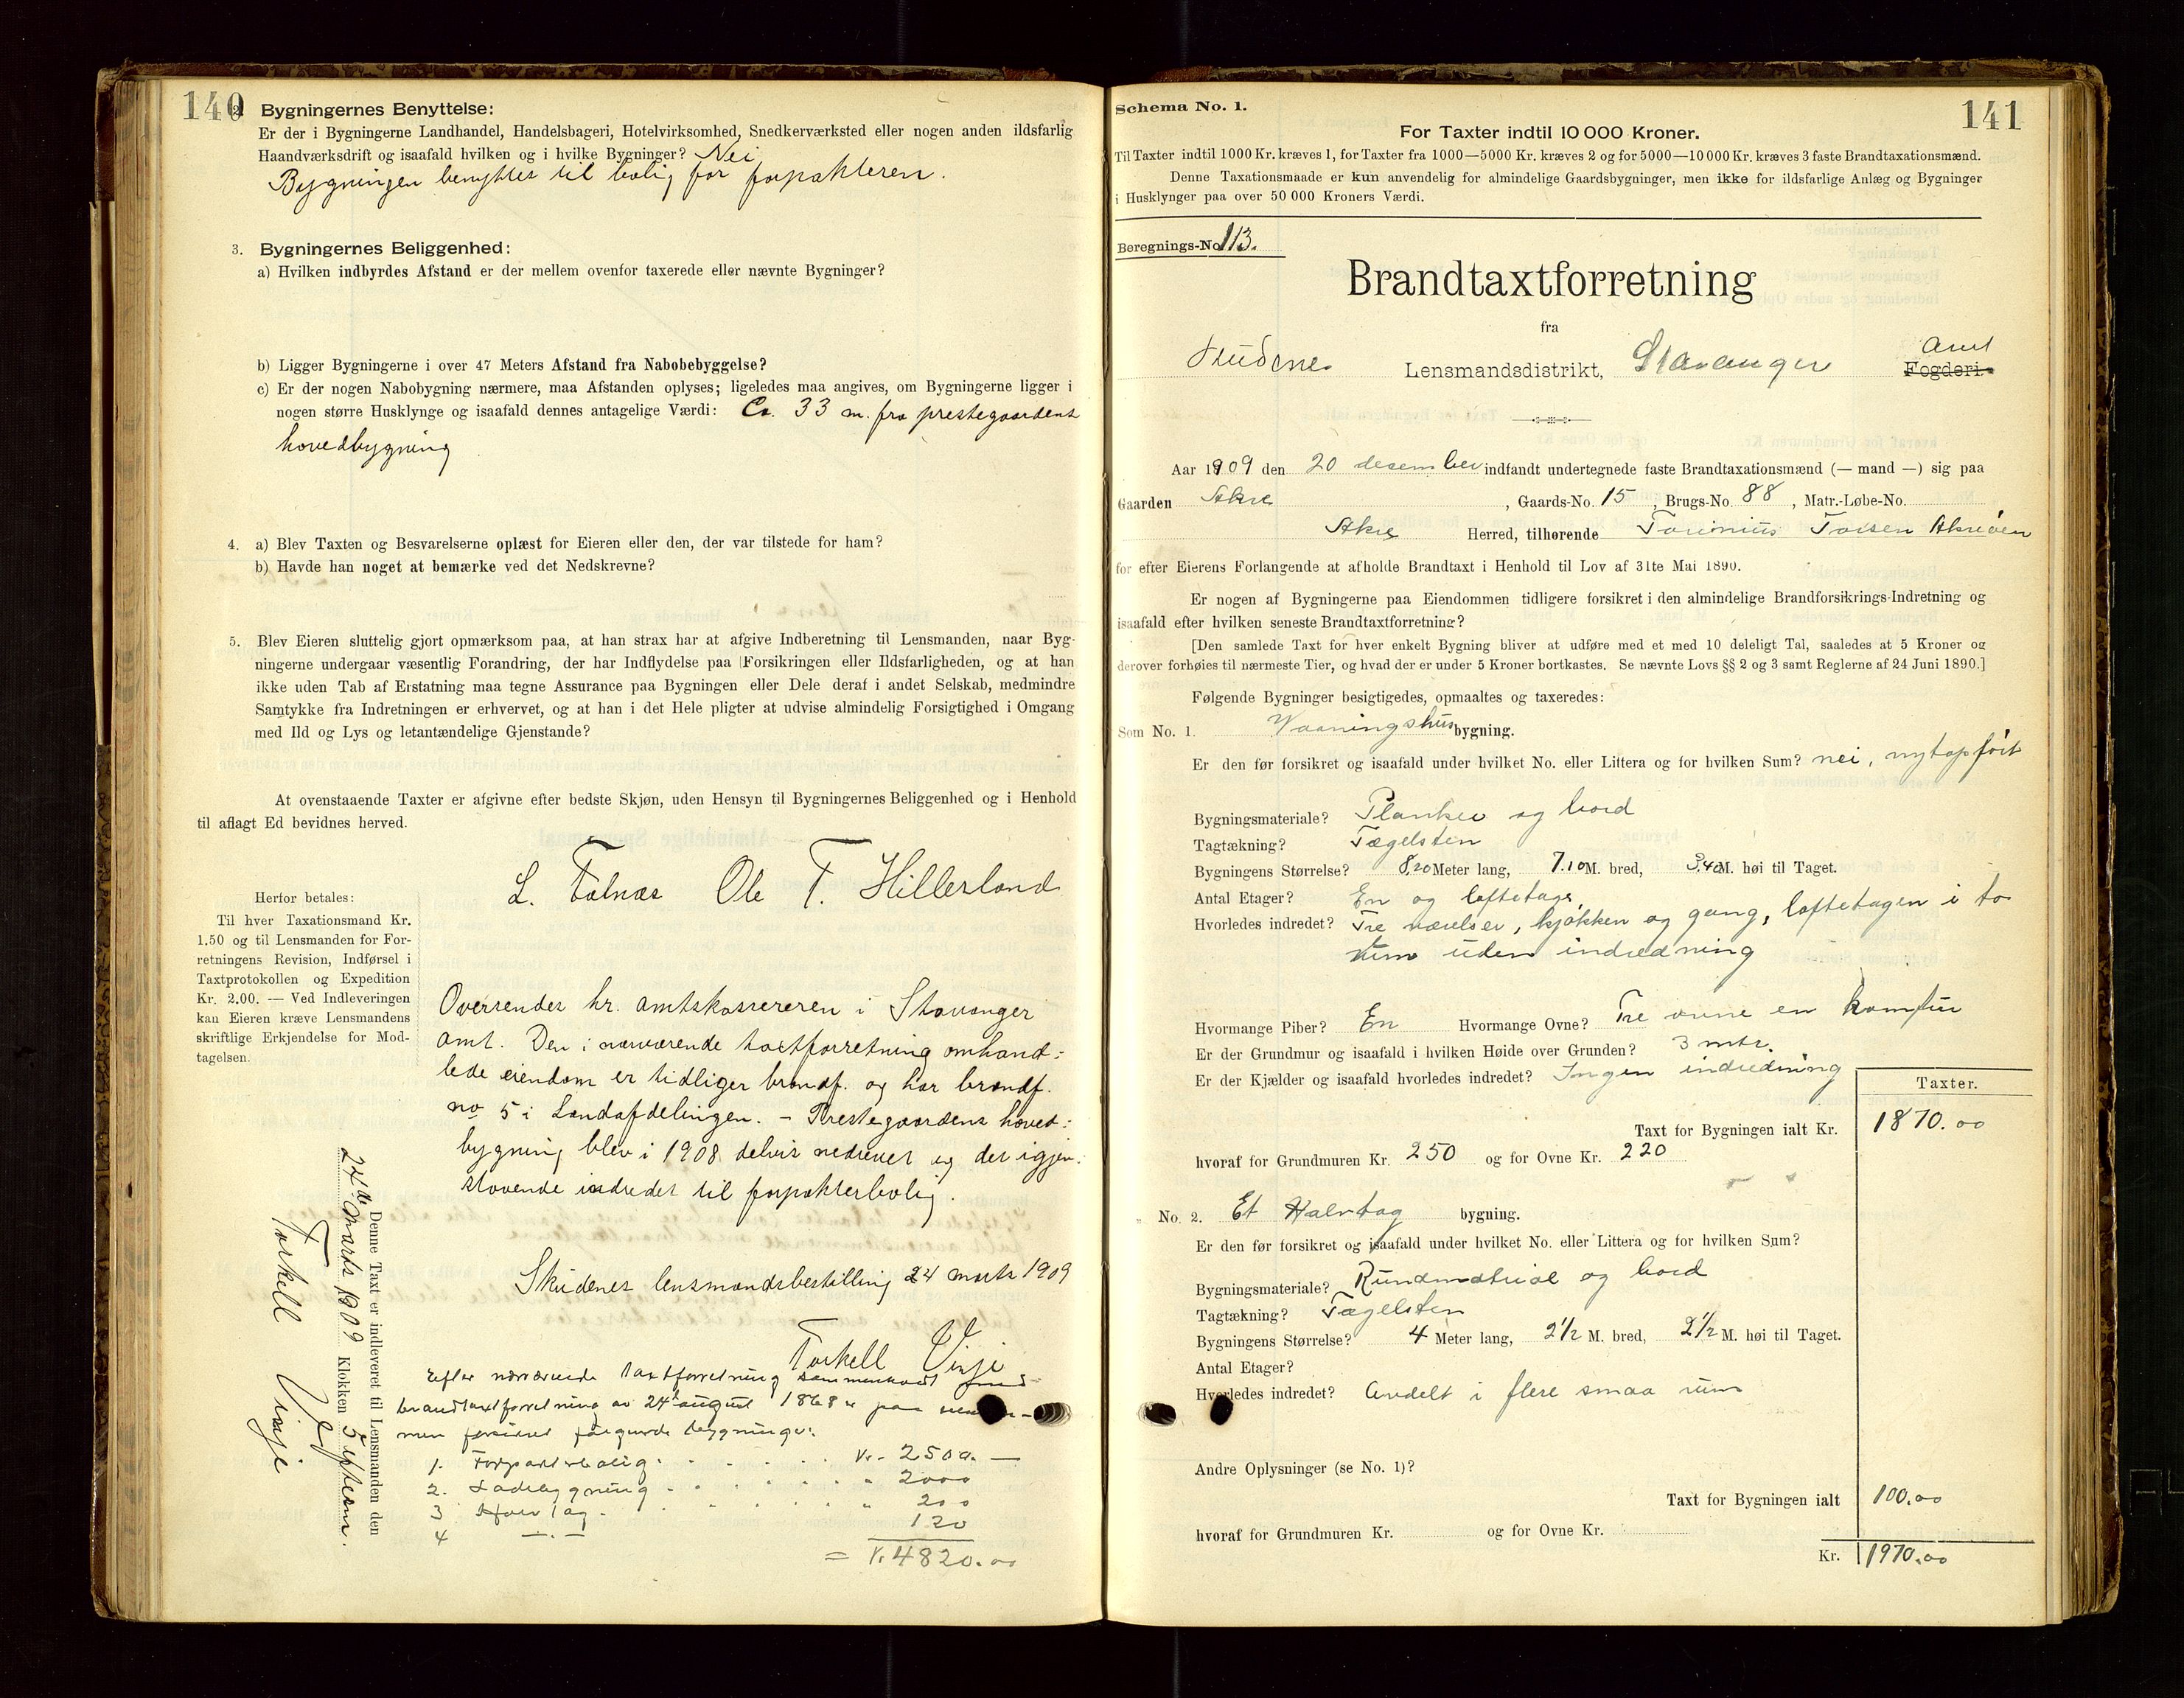 140
2. Bygningernes Benyttelse:
Er der i Bygningerne Landhandel, Handelsbageri, Hotelvirksomhed, Snedkerværksted eller nogen anden ildsfarlig
Haandværksdrift og isaafald hvilken og i hvilke Bygninger? Nei
Bygningen benyttes til bolig for forpakteren.
3. Bygningernes Beliggenhed:
a) Hvilken indbyrdes Afstand er der mellem ovenfor taxerede eller nævnte Bygninger?
b) Ligger Bygningerne i over 47 Meters Afstand fra Nabobebyggelse?
c) Er der nogen Nabobygning nærmere, maa Afstanden oplyses; ligeledes maa angives, om Bygningerne ligger i
nogen større Husklynge og isaafald dennes antagelige Værdi: Ca. 33 m. fra prestegaardens
hovedbygning
4. a) Blev Taxten og Besvarelserne oplæst for Eieren eller den, der var tilstede for ham?
b) Havde han noget at bemærke ved det Nedskrevne?
5. Blev Eieren sluttelig gjort opmærksom paa, at han strax har at afgive Indberetning til Lensmanden, naar Byg-
ningerne undergaar væsentlig Forandring, der har Indflydelse paa Forsikringen eller Ildsfarligheden, og at han
ikke uden Tab af Erstatning maa tegne Assurance paa Bygningen eller Dele deraf i andet Selskab, medmindre
Samtykke fra Indretningen er erhvervet, og at han i det Hele pligter at udvise almindelig Forsigtighed i Omgang
med Ild og Lys og letantændelige Gjenstande?
At ovenstaaende Taxter er afgivne efter bedste Skjøn, uden Hensyn til Bygningernes Beliggenhed og i Henhold
til aflagt Ed bevidnes herved.
L. Falnes Ole T. Hillerland
Herfor betales:
Til hver Taxationsmand Kr.
1.50 og til Lensmanden for For-
retningens Revision, Indførsel i
Taxtprotokollen og Expedition
Kr. 2.00. — Ved Indleveringen
kan Eieren kræve Lensmandens
skriftlige Erkjendelse for Mod-
tagelsen.
Oversendes hr. amtskassereren i Stavanger
amt. Den i nærværende taxtforretning omhand-
lede eiendom er tidliger brandf. og har brandf.
no 5 i Landafdelingen. - Prestegaardens hoved-
bygning blev i 1908 delvis nedrevet og det igjen-
staaende indredet til forpakterbolig.
Skudenes lensmandsbestilling 24 marts 1909
Torkell Vinje
Efter nærværende taxtforretning sammenholdt med
brandtaxtforretning av 24 august 1868 er paa
men forsikret følgende bygninger:
1. Forpakterbolig Kr. 2500. —
2. Ladebygning " 2000
3 Halvtag " 200
4 —.— 120
= Kr 4820.00
Denne Taxt er indleveret til Lensmanden den
24de marts 1909 Klokken 5 efterm.
Torkell Vinje
Schema No. 1.
141
For Taxter indtil 10 000 Kroner.
Til Taxter indtil 1000 Kr. kræves 1, for Taxter fra 1000—5000 Kr. kræves 2 og for 5000—10 000 Kr. kræves 3 faste Brandtaxationsmænd.
Denne Taxationsmaade er kun anvendelig for almindelige Gaardsbygninger, men ikke for ildsfarlige Anlæg og Bygninger
i Husklynger paa over 50 000 Kroners Værdi.
Beregnings-No 113.
Brandtaxtforretning
fra
Skudene Lensmandsdistrikt, Stavanger Amt Fogderi.
Aar 1909 den 20 desember indfandt undertegnede faste Brandtaxationsmænd (— mand —) sig paa
Gaarden Akre, Gaards-No. 15, Brugs-No. 88, Matr.-Løbe-No.
Akre Herred, tilhørende Torinius Toisen Akreöen
for efter Eierens Forlangende at afholde Brandtaxt i Henhold til Lov af 31te Mai 1890.
Er nogen af Bygningerne paa Eiendommen tidligere forsikret i den almindelige Brandforsikrings-Indretning og
isaafald efter hvilken seneste Brandtaxtforretning?
[Den samlede Taxt for hver enkelt Bygning bliver at udføre med et med 10 deleligt Tal, saaledes at 5 Kroner og
derover forhøies til nærmeste Tier, og hvad der er under 5 Kroner bortkastes. Se nævnte Lovs §§ 2 og 3 samt Reglerne af 24 Juni 1890.]
Følgende Bygninger besigtigedes, opmaaltes og taxeredes:
Som No. 1. Vaaningshus bygning.
Er den før forsikret og isaafald under hvilket No. eller Littera og for hvilken Sum? nei, nytopfört
Bygningsmateriale? Planker og bord
Tagtækning? Tægelsten
Bygningens Størrelse? 8.20 Meter lang, 7.10 M. bred, 3.40 M. høi til Taget.
Antal Etager? En og loftetage,
Hvorledes indredet? Tre værelser, kjökken og gang, loftetagen i to
rum uden indredning
Hvormange Piber? En Hvormange Ovne? Tre ovne en komfur
Er der Grundmur og isaafald i hvilken Høide over Grunden? 3 mtr.
Er der Kjælder og isaafald hvorledes indredet? Ingen indredning
Taxter.
Taxt for Bygningen ialt Kr. 1870.00
hvoraf for Grundmuren Kr. 250 og for Ovne Kr. 220
" No. 2. Et Halvtag bygning.
Er den før forsikret og isaafald under hvilket No. eller Littera og for hvilken Sum?
Bygningsmateriale? Rundmatrial og bord
Tagtækning? Tægelsten
Bygningens Størrelse? 4 Meter lang, 2½ M. bred, 2½ M. høi til Taget.
Antal Etager?
Hvorledes indredet? Avdelt i flere smaa rum
Andre Oplysninger (se No. 1)?
Taxt for Bygningen ialt 100.00
hvoraf for Grundmuren Kr. og for Ovne Kr.
Kr. 1970.00